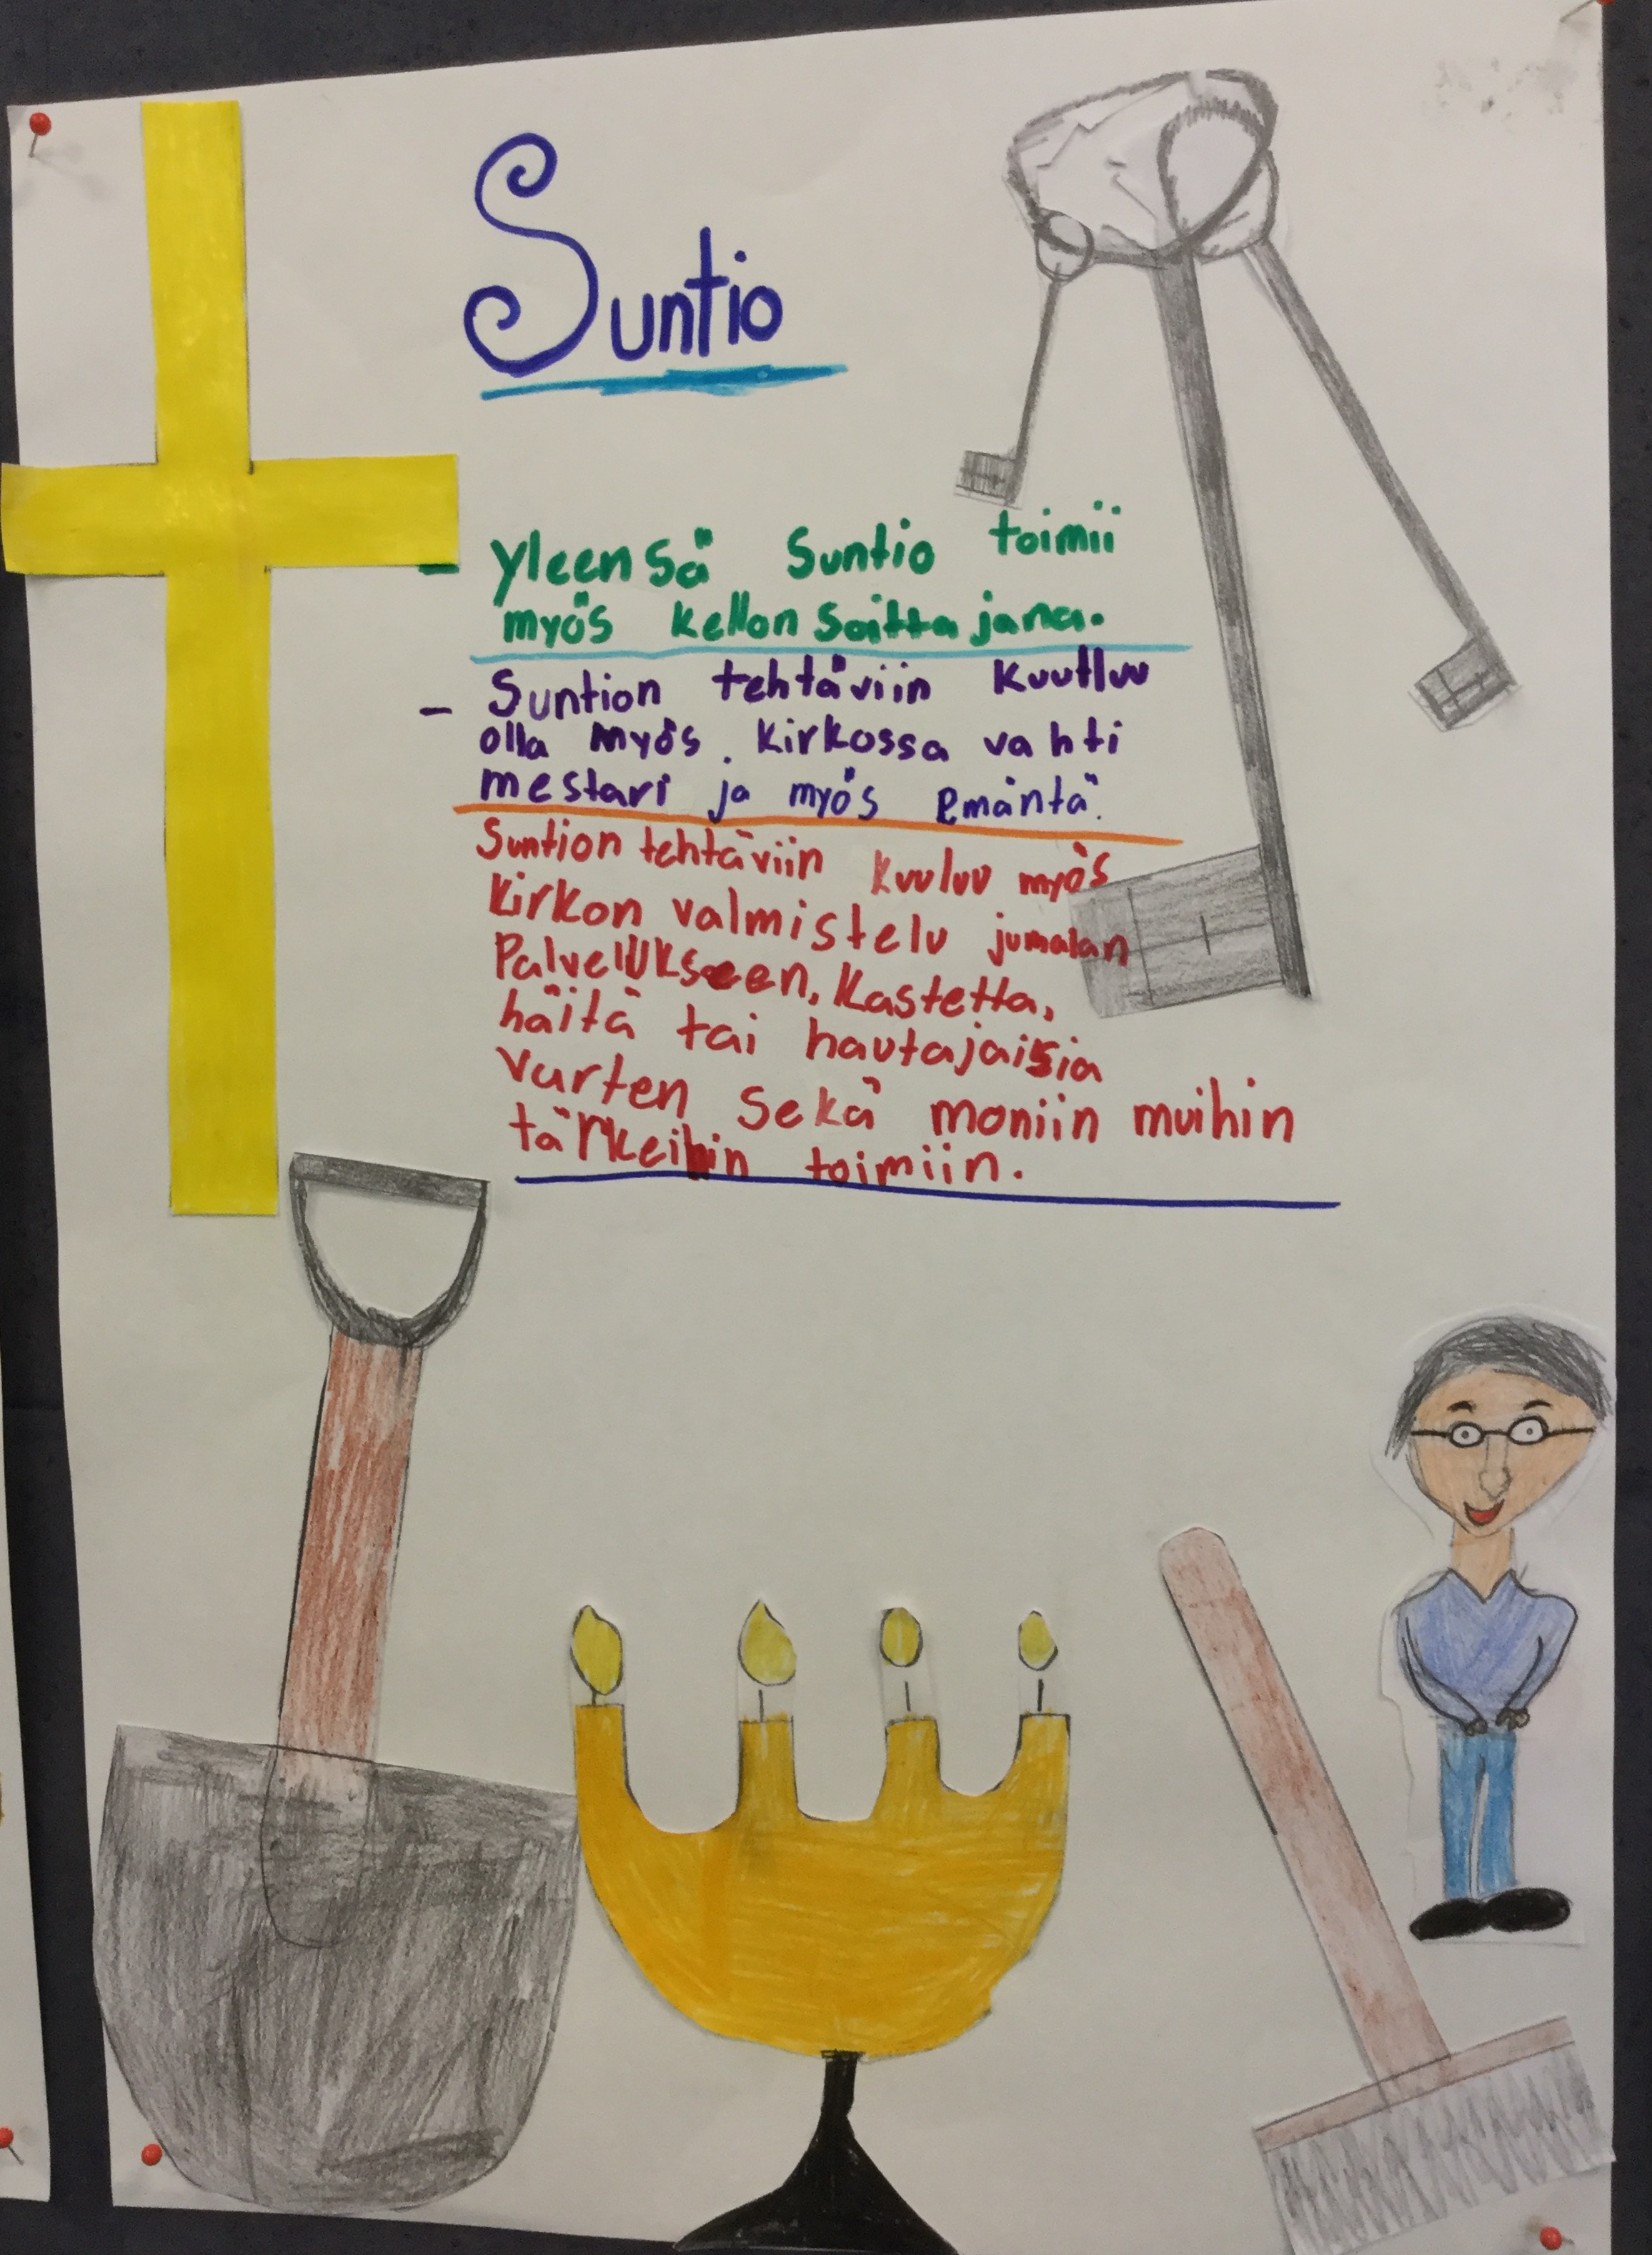 Suntio
- yleensä Suntio toimii
myös kellon Soittajana.
- Suntion tehtäviin kuutluu
olla myös kirkossa vahti
mestari ja myös emäntä.
Suntion tehtäviin kuuluu myös
kirkon valmistelu jumalan
Palvelukseen, kastetta,
häitä tai hautajaisia
varten sekä moniin muihin
tärkeihin toimiin.